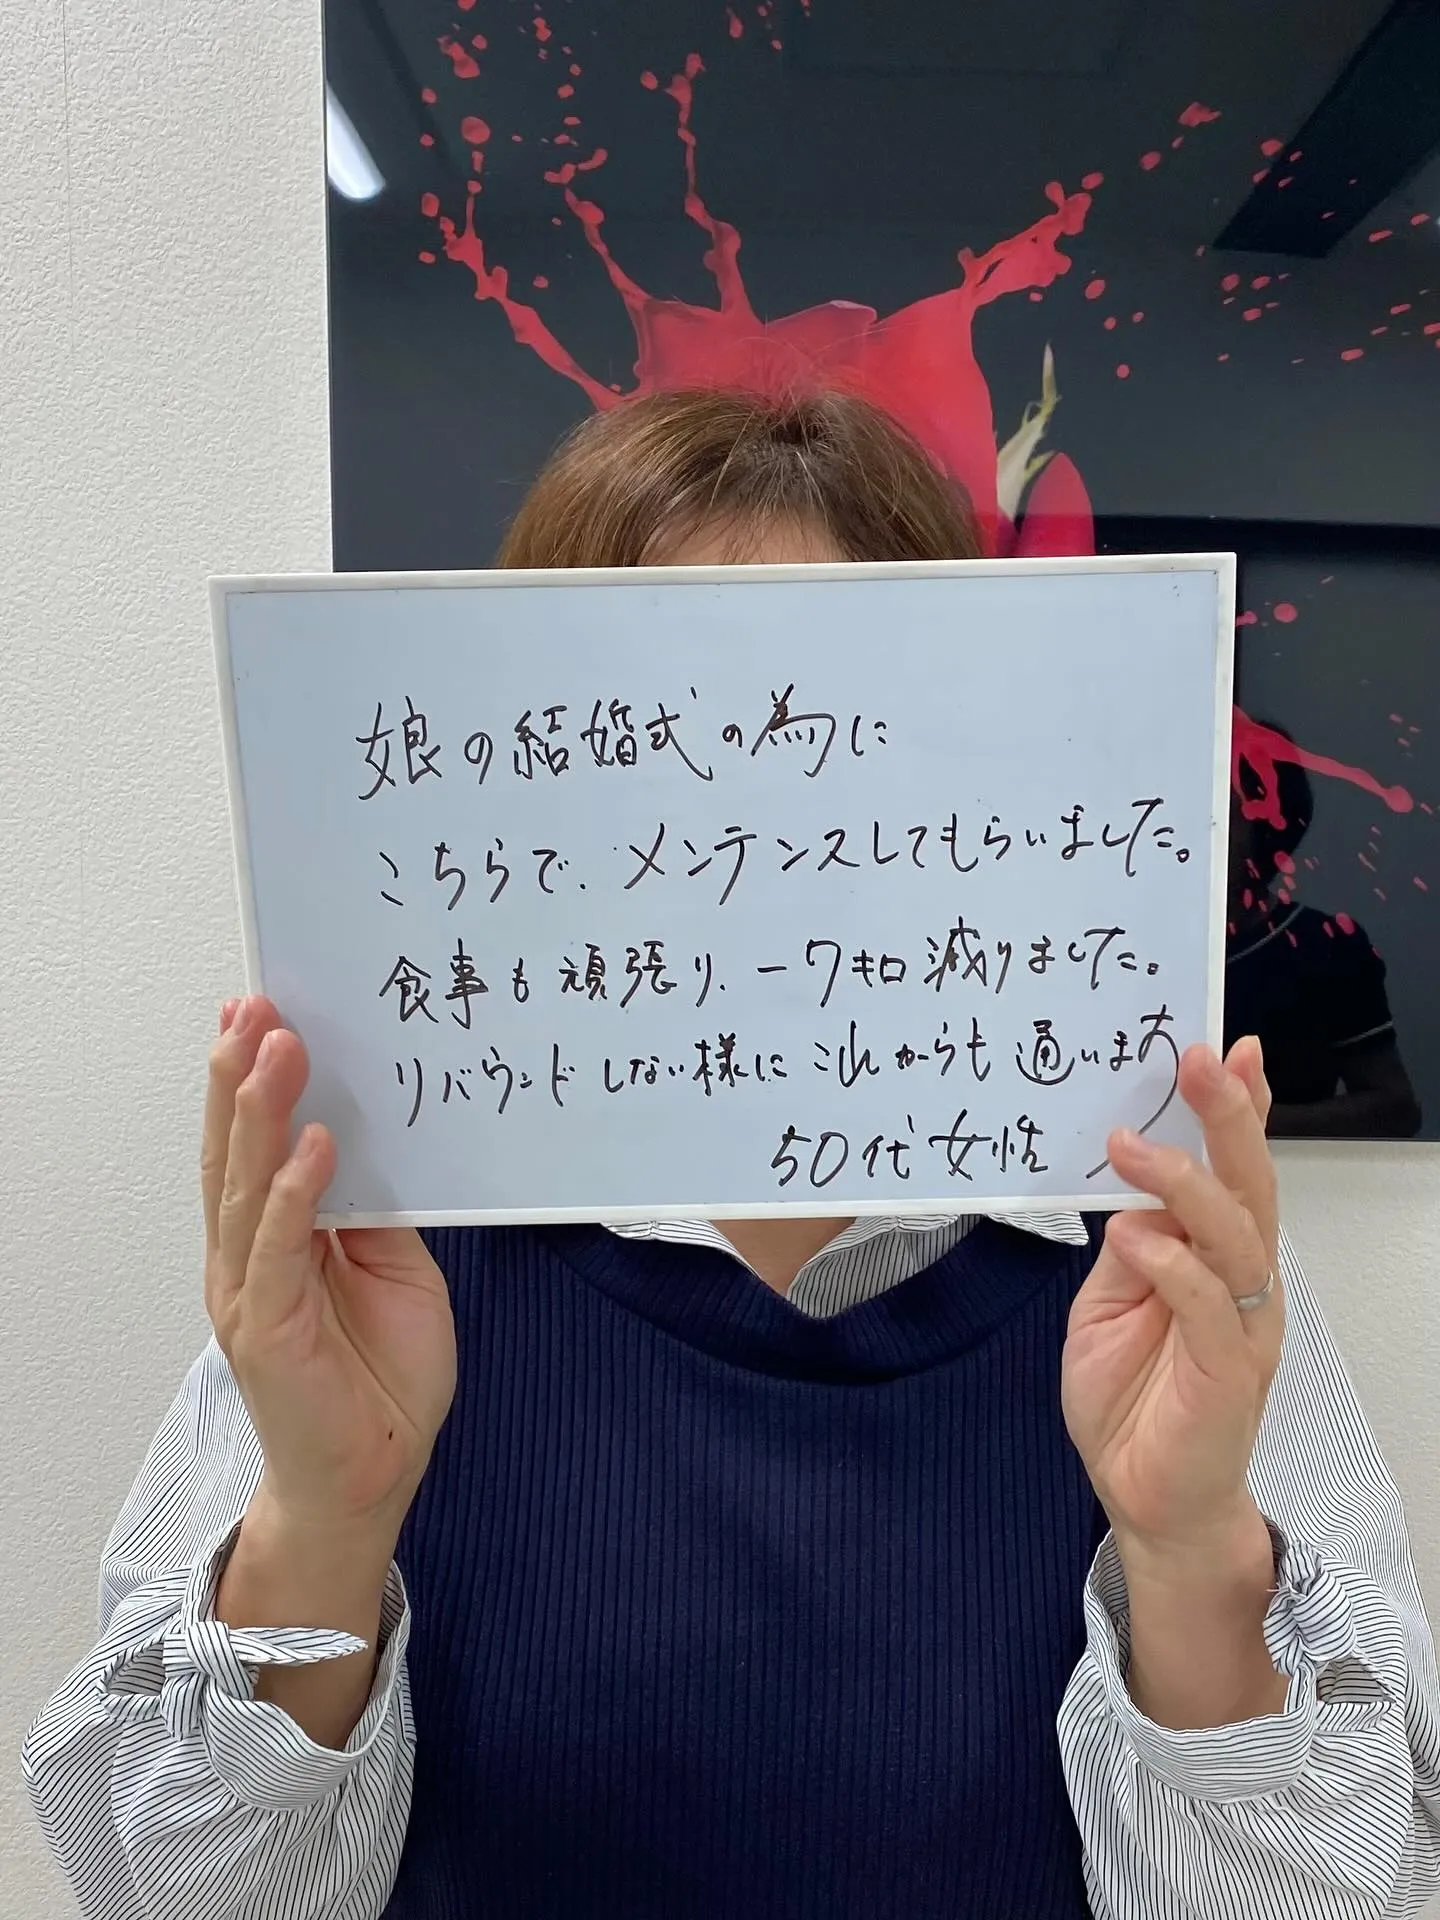 娘の結婚式の為に
こちらで、メンテンスしてもらいました。
食事も頑張り、−7キロ減りました。
リバウンドしない様にこれからも通います
50代女性